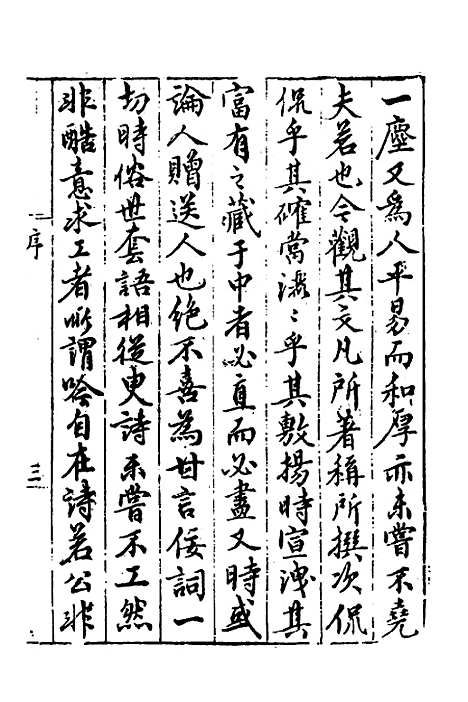 一塵又爲人平易而和厚亦未嘗不堯
夫若也今觀其文凡所著稱所撰次侃
侃乎其確當濯濯乎其敷揚時宣洩其
富有之藏于中者必直而必盡又時或
論人贈送人也絶不喜為甘言佞詞一
切時俗世套語相從更詩未嘗不工然
非酷意求工者所謂吟自在詩若公非
序
三